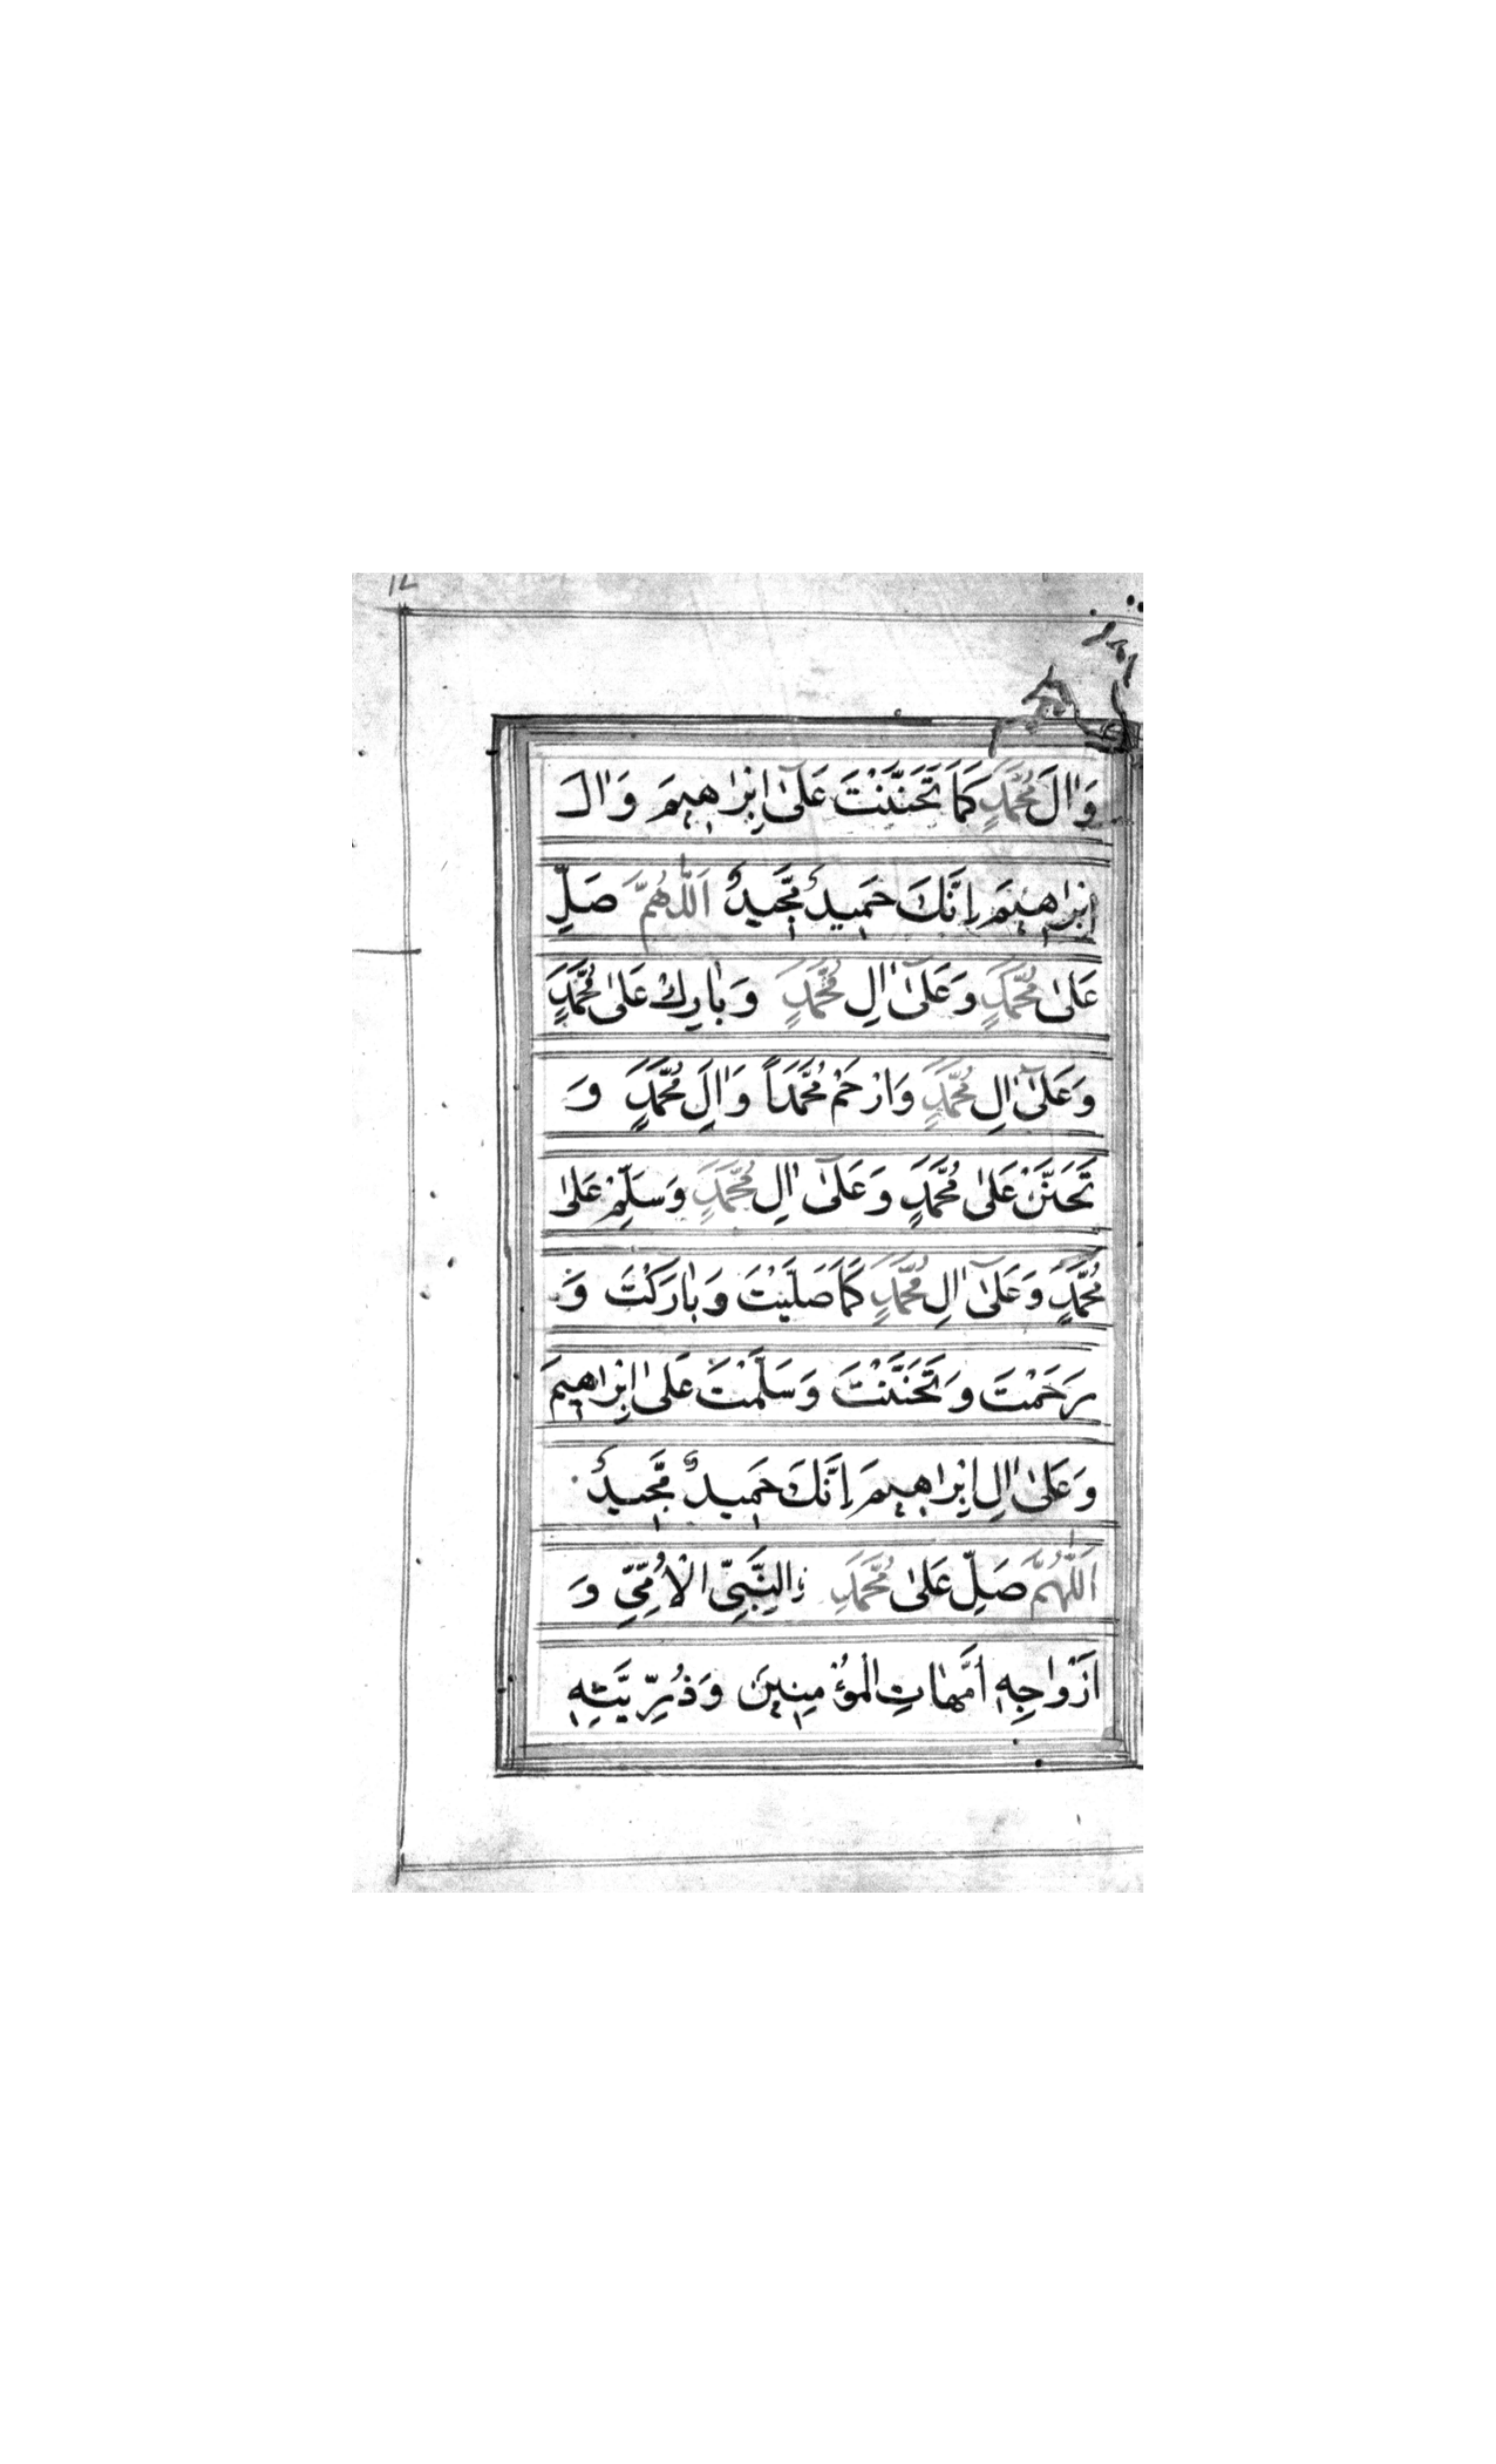 وَاٰلَ مُحَمَّدٍ كَمَا تَحَنَّنْتَ عَلٰٓى اِبْرٰاهِيْمَ وَاٰلَ
اِبْرٰاهِيْمَ اِنَّكَ حَمِيْدٌ مَّجِيْدٌ اَللّٰهُمَّ صَلِّ
عَلٰى مُحَمَّدٍ وَعَلٰٓى اٰلِ مُحَمَّدٍ وَبٰارِكْ عَلٰى مُحَمَّدٍ
وَعَلٰٓى اٰلِ مُحَمَّدٍ وَارْحَمْ مُحَمَّدَاً وَاٰلِ مُحَمَّدٍ وَ
تَحَنَّنْ عَلٰى مُحَمَّدٍ وَعَلٰٓى اٰلِ مُحَمَّدٍ وَسَلِّمْ عَلٰى
مُحَمَّدٍ وَعَلٰٓى اٰلِ مُحَمَّدٍ كَمَا صَلَّيْتَ وَبٰارَكْتَ وَ
رَحَمْتَ وَتَحَنَّنْتَ وَسَلَّمْتَ عَلٰى اِبْرٰاهِيْمَ
وَعَلٰى اٰلِ اِبْرٰاهِيْمَ اِنَّكَ حَمِيْدٌ مَّجِيْدٌ
اَللّٰهُمَّ صَلِّ عَلٰى مُحَمَّدِ نِ النَّبِيِّ الْاُمِّيِّ وَ
اَزْوٰاجِهٖ اُمَّهٰاتِ الْمُؤْمِنِيْنَ وَذُرِّيَّتِهٖ